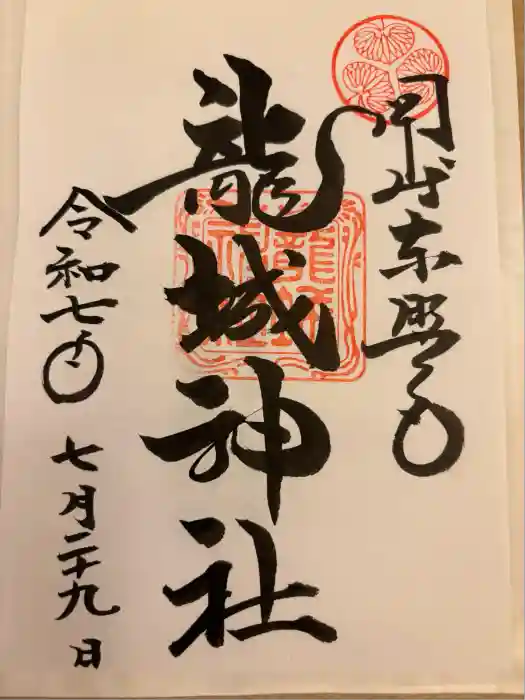 岡崎東照宮
龍城神社
令和七年
七月二十九日